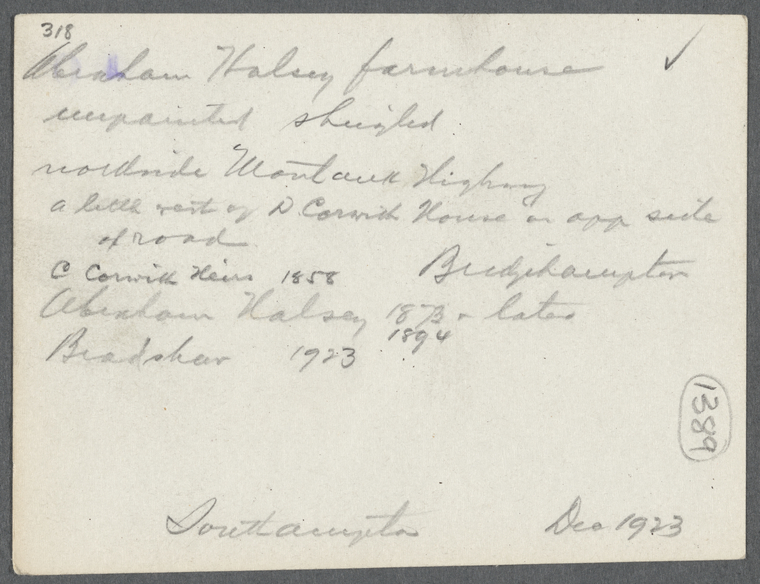 318
Abraham Halsey farmhouse ✓
unpainted shingled
northside Montauk Highway
a little west of D Corwith House on opp side
of road
C Corwith Heirs 1858 Bridgehampton
Abraham Halsey 1873 & later
1894
Bradshaw 1923
1389
Southampton Dec 1923